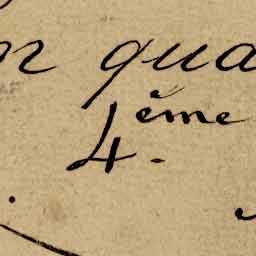 qua
4.ème